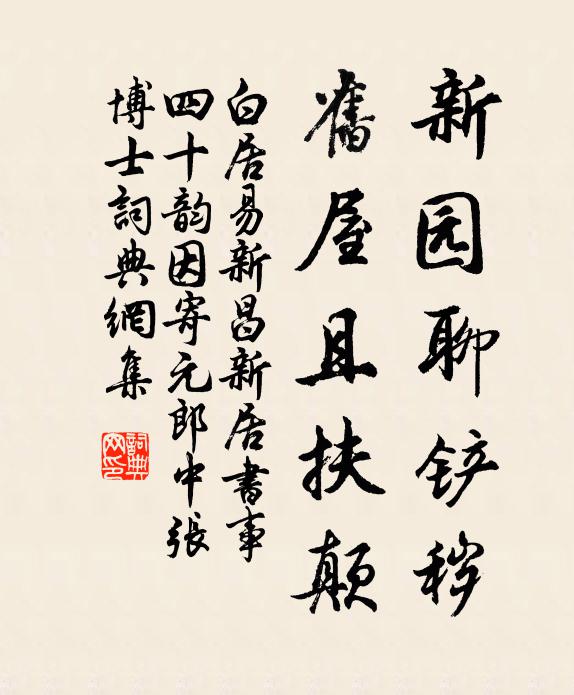 新园聊铲秽
舊屋且扶颠
白居易新昌新居書事
四十韵因寄元郎中張
博士詞典網集
詞典网印